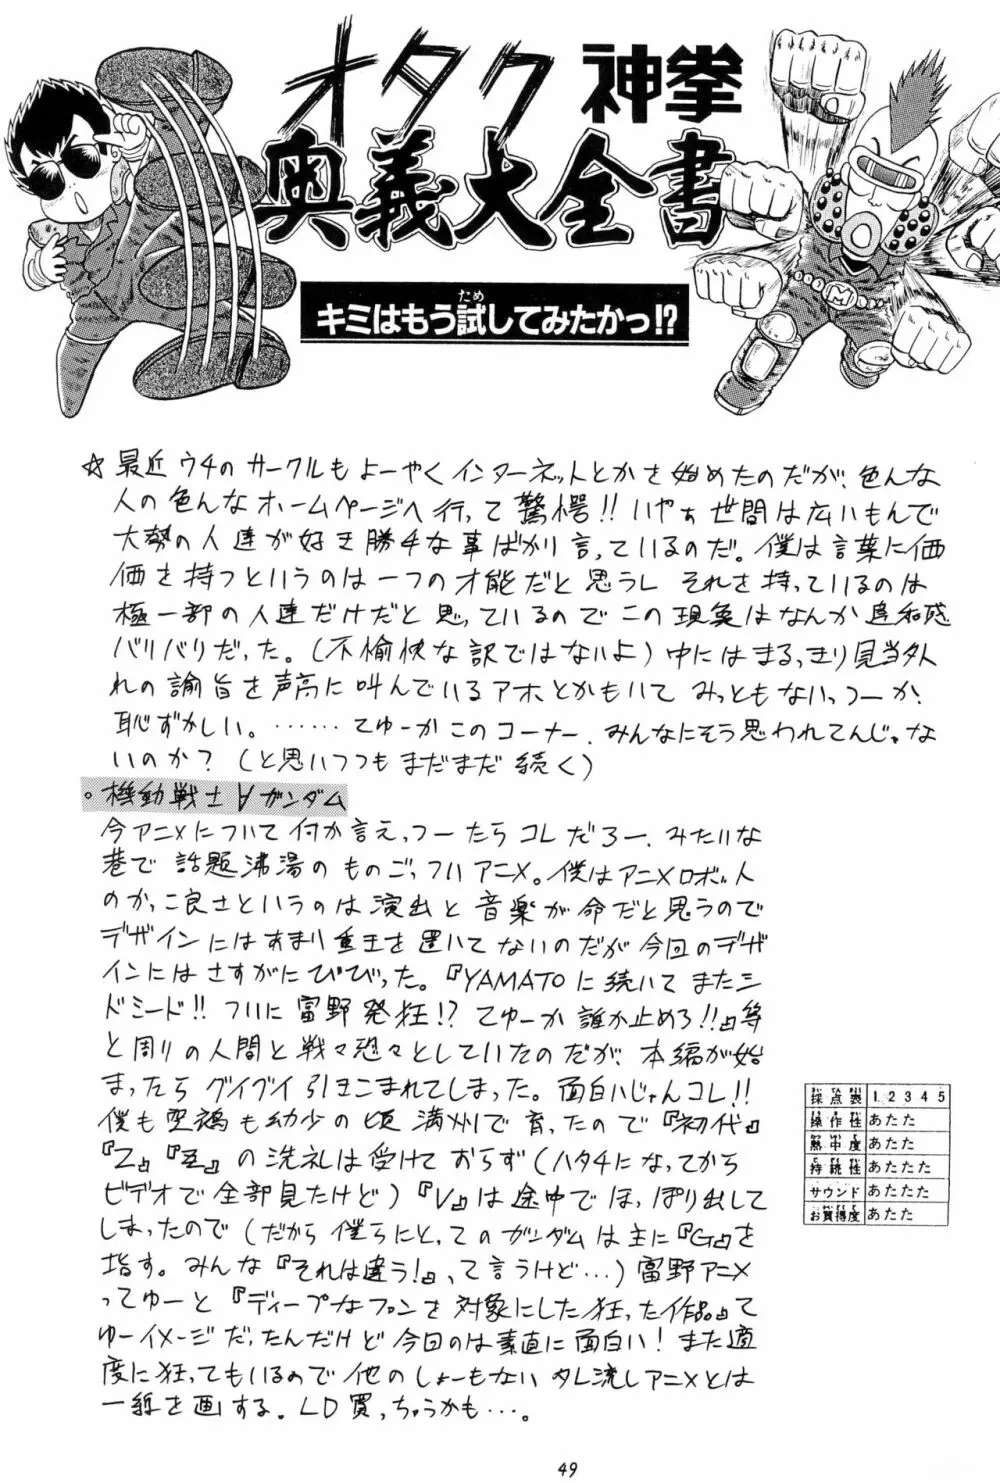 オタク神拳
奥義大全書
キミはもう試してみたかっ!?
ため
M
☆最近ウチのサークルもよーやくインターネットとかを始めたのだが、色んな
人の色んなホームページへ行って驚愕!!いやぁ世間は広いもんで
大勢の人達が好き勝手な事ばかり言っているのだ。僕は言葉に価
価を持つというのは一つの才能だと思うし それを持っているのは
極一部の人達だけだと思っているのでこの現象はなんか違和感
バリバリだった。(不愉快な訳ではないよ)中にはまるっきり見当外
れの論旨を声高に叫んでいるアホとかもいて みっともないっつーか、
恥ずかしい。……てゆーかこのコーナー、みんなにそう思われてんじゃな
いのか?(と思いつつもまだまだ続く)
。機動戦士∀ガンダム
今アニメについて何か言えっつーたらコレだろー、みたいな
巷で話題沸湯のものごっついアニメ。僕はアニメロボット
のかっこ良さというのは演出と音楽が命だと思うので
デザインにはあまり重きを置いてないのだが今回のデザ
インにはさすがにびびった。『YAMATOに続いてまたシ
ドミード!!ついに富野発狂!?てゆーか誰か止めろ!!』等
と周りの人間と戦々恐々としていたのだが、本編が始
まったらグイグイ引きこまれてしまった。面白いじゃんコレ!!
僕も空鵺も幼少の頃満州で育ったので『初代』
『Z』『ZZ』の洗礼は受けておらず(ハタチになってから
ビデオで全部見たけど)『V』は途中でほっぽり出して
しまったので(だから僕らにとってのガンダムは主に『G』を
指す。みんな『それは違う!』って言うけど…)富野アニメ
ってゆーと『ディープなファンを対象にした狂った作品』て
ゆーイメージだったんだけど今回のは素直に面白い!また適
度に狂ってもいるので他のしょーもないタレ流しアニメとは
一線を画する。LD買っちゃうかも…。
採点表 1 2 3 4 5
操作性 あたた
熱中度 あたた
持続性 あたたた
サウンド あたたた
お買得度 あたた
49